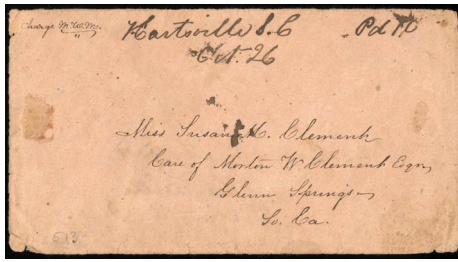 Charge
Hartsville S.C Pd 10
Oct. 26
Miss Susan H. Clement
Care of Morton W Clement Esqr
Glenn Springs
So. Ca.